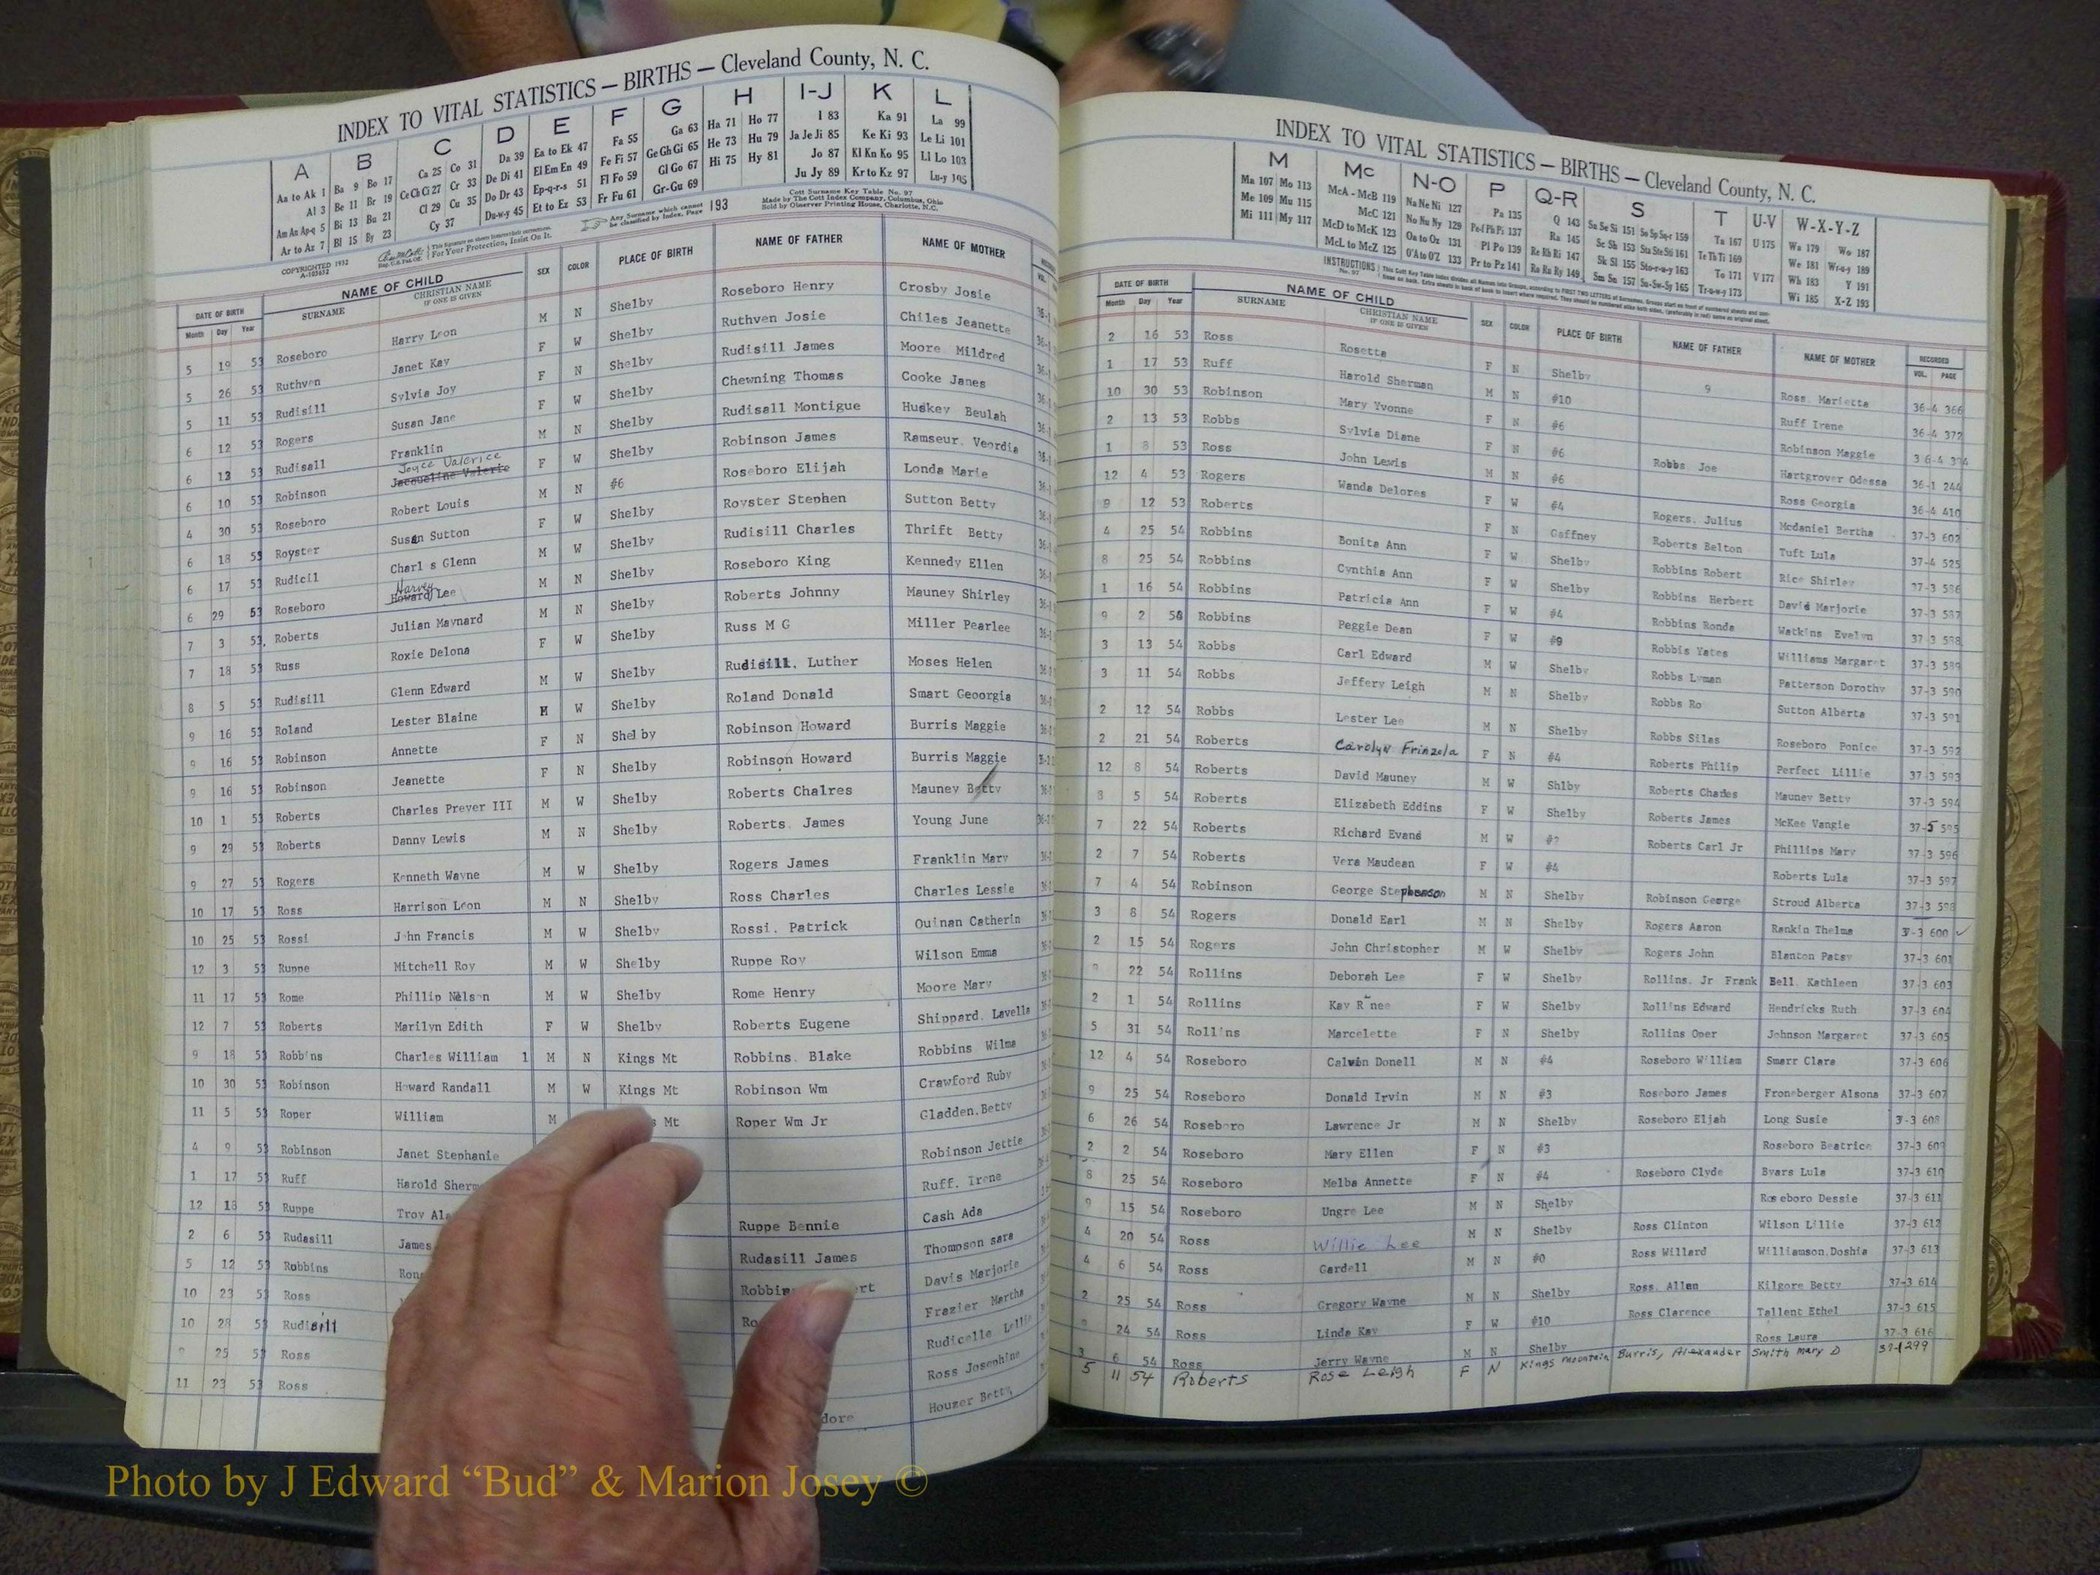 INDEX TO VITAL STATISTICS — BIRTHS — Cleveland County, N. C.
A B C D E F G H I-J K L
Aa to Ak 1 Ba 9 Bo 17 Ca 25 Co 31 Da 39 Ea to Ek 47 Fa 55 Ga 63 Ha 71 Ho 77 I 83 Ka 91 La 99
Al 3 Be 11 Br 19 Ce Ch Ci 27 Cr 33 De Di 41 El Em En 49 Fe Fi 57 Ge Gh Gi 65 He 73 Hu 79 Ja Je Ji 85 Ke Ki 93 Le Li 101
Am An Ap-q 5 Bi 13 Bu 21 Cl 29 Cu 35 Do Dr 43 Ep-q-r-s 51 Fl Fo 59 Gl Go 67 Hi 75 Hy 81 Jo 87 Kl Kn Ko 95 Ll Lo 103
Ar to Az 7 Bl 15 By 23 Cy 37 Du-w-y 45 Et to Ez 53 Fr Fu 61 Gr-Gu 69 Ju Jy 89 Kr to Kz 97 Lu-y 105
COPYRIGHTED 1932
A-105632
For Your Protection, Insist On It.
Any Surname which cannot be classified by Index, Page 193
Cott Surname Key Table No. 97
Made by The Cott Index Company, Columbus, Ohio
Sold by Observer Printing House, Charlotte, N.C.
DATE OF BIRTH NAME OF CHILD SEX COLOR PLACE OF BIRTH NAME OF FATHER NAME OF MOTHER
Month Day Year SURNAME CHRISTIAN NAME IF ONE IS GIVEN
5 19 53 Roseboro Harry Leon M N Shelby Roseboro Henry Crosby Josie
5 26 53 Ruthven Janet Kay F W Shelby Ruthven Josie Chiles Jeanette
5 11 53 Rudisill Sylvia Joy F N Shelby Rudisill James Moore Mildred
6 12 53 Rogers Susan Jane F W Shelby Chewning Thomas Cooke Janes
6 13 53 Rudisall Franklin M N Shelby Rudisall Montigue Huskey Beulah
6 10 53 Robinson Joyce Valerice Jacqueline Valerie F W Shelby Robinson James Ramseur. Veordia
4 30 53 Roseboro Robert Louis M N #6 Roseboro Elijah Londa Marie
6 18 53 Royster Susan Sutton F W Shelby Royster Stephen Sutton Betty
6 17 53 Rudicil Charl s Glenn M W Shelby Rudisill Charles Thrift Betty
6 29 53 Roseboro Harvey Howard Lee M N Shelby Roseboro King Kennedy Ellen
7 3 53 Roberts Julian Maynard M N Shelby Roberts Johnny Mauney Shirley
7 18 53 Russ Roxie Delona F W Shelby Russ M G Miller Pearlee
8 5 53 Rudisill Glenn Edward M W Shelby Rudisill. Luther Moses Helen
9 16 53 Roland Lester Blaine M W Shelby Roland Donald Smart Geoorgia
9 16 53 Robinson Annette F N Shelby Robinson Howard Burris Maggie
9 16 53 Robinson Jeanette F N Shelby Robinson Howard Burris Maggie
10 1 53 Roberts Charles Prever III M W Shelby Roberts Chalres Mauney Betty
9 29 53 Roberts Danny Lewis M N Shelby Roberts James Young June
9 27 53 Rogers Kenneth Wayne M W Shelby Rogers James Franklin Mary
10 17 53 Ross Harrison Leon M N Shelby Ross Charles Charles Lessie
10 25 53 Rossi John Francis M W Shelby Rossi. Patrick Quinan Catherin
12 3 53 Ruppe Mitchell Roy M W Shelby Ruppe Roy Wilson Emma
11 17 53 Rome Phillip Nelson M W Shelby Rome Henry Moore Mary
12 7 53 Roberts Marilyn Edith F W Shelby Roberts Eugene Shippard. Lavella
9 18 53 Robbins Charles William 1 M N Kings Mt Robbins. Blake Robbins Wilma
10 30 53 Robinson Howard Randall M W Kings Mt Robinson Wm Crawford Ruby
11 5 53 Roper William M s Mt Roper Wm Jr Gladden.Betty
4 9 53 Robinson Janet Stephanie Robinson Jettie
1 17 53 Ruff Harold Sherm Ruff. Irene
12 18 53 Ruppe Troy Ala Ruppe Bennie Cash Ada
2 6 53 Rudasill James Rudasill James Thompson sara
5 12 53 Robbins Ron Robbin rt Davis Marjorie
10 23 53 Ross Ro Frazier Martha
10 28 53 Rudisill Rudicelle Lelli
25 53 Ross Ross Josephine
11 23 53 Ross dore Houzer Betty
INDEX TO VITAL STATISTICS — BIRTHS — Cleveland County, N. C.
M Mc N-O P Q-R S T U-V W-X-Y-Z
Ma 107 Mo 113 McA - McB 119 Na Ne Ni 127 Pa 135 Q 143 Sa Se Si 151 So Sp Sq-r 159 Ta 167 U 175 Wa 179 Wo 187
Me 109 Mu 115 McC 121 No Nu Ny 129 Pe-f Ph Pi 137 Ra 145 Sc Sh 153 Sta Ste Sti 161 Te Th Ti 169 We 181 Wr-u-y 189
Mi 111 My 117 McD to McK 123 Oa to Oz 131 Pl Po 139 Re Rh Ri 147 Sk Sl 155 Sto-r-u-y 163 To 171 V 177 Wh 183 Y 191
McL to McZ 125 O'A to O'Z 133 Pr to Pz 141 Ro Ru Ry 149 Sm Sn 157 Su-Sw-Sy 165 Tr-u-w-y 173 Wi 185 X-Z 193
INSTRUCTIONS No. 97
DATE OF BIRTH NAME OF CHILD SEX COLOR PLACE OF BIRTH NAME OF FATHER NAME OF MOTHER RECORDED
Month Day Year SURNAME CHRISTIAN NAME IF ONE IS GIVEN VOL. PAGE
2 16 53 Ross Rosetta F N Shelby 9 Ross. Marietta 36-4 366
1 17 53 Ruff Harold Sherman M N #10 Ruff Irene 36-4 372
10 30 53 Robinson Mary Yvonne F N #6 Robinson Maggie 36-4 374
2 13 53 Robbs Sylvia Diane F N #6 Robbs Joe Hartgrover Odessa 36-1 244
1 8 53 Ross John Lewis M N #6 Ross Georgia 36-4 410
12 4 53 Rogers Wanda Delores F W #4 Rogers. Julius Mcdaniel Bertha 37-3 602
12 53 Roberts F N Gaffney Roberts Belton Tuft Lula 37-4 525
4 25 54 Robbins Bonita Ann F W Shelby Robbins Robert Rice Shirley 37-3 586
8 25 54 Robbins Cynthia Ann F W Shelby Robbins Herbert David Marjorie 37-3 587
1 16 54 Robbins Patricia Ann F W #4 Robbins Ronda Watkins Evelyn 37-3 588
9 2 58 Robbins Peggie Dean F W #9 Robbis Yates Williams Margaret 37-3 589
3 13 54 Robbs Carl Edward M W Shelby Robbs Lyman Patterson Dorothy 37-3 590
3 11 54 Robbs Jeffery Leigh M N Shelby Robbs Ro Sutton Alberta 37-3 591
2 12 54 Robbs Lester Lee M N Shelby Robbs Silas Roseboro Ponice 37-3 592
2 21 54 Roberts Carolyn Frinzola F N #4 Roberts Philip Perfect Lillie 37-3 593
12 8 54 Roberts David Mauney M W Shlby Roberts Charles Mauney Betty 37-3 594
8 5 54 Roberts Elizabeth Eddins F W Shelby Roberts James McKee Vangie 37-5 595
7 22 54 Roberts Richard Evans M W Roberts Carl Jr Phillips Mary 37-3 596
2 7 54 Roberts Vera Maudean F W #4 Roberts Lula 37-3 597
7 4 54 Robinson George Stephenson M N Shelby Robinson George Stroud Alberta 37-3 598
3 8 54 Rogers Donald Earl M N Shelby Rogers Aaron Rankin Thelma 37-3 600
2 15 54 Rogers John Christopher M W Shelby Rogers John Blanton Patsy 37-3 601
22 54 Rollins Deborah Lee F W Shelby Rollins. Jr Frank Bell Kathleen 37-3 603
2 1 54 Rollins Kay R nee F W Shelby Rollins Edward Hendricks Ruth 37-3 604
5 31 54 Rollins Marcelette F N Shelby Rollins Oper Johnson Margaret 37-3 605
12 4 54 Roseboro Calvin Donell M N #4 Roseboro William Smarr Clara 37-3 606
9 25 54 Roseboro Donald Irvin M N #3 Roseboro James Froneberger Alsona 37-3 607
6 26 54 Roseboro Lawrence Jr M N Shelby Roseboro Eljah Long Susie 37-3 608
2 2 54 Roseboro Mary Ellen F N #3 Roseboro Beatrice 37-3 609
8 25 54 Roseboro Melba Annette F N #4 Roseboro Clyde Byars Lula 37-3 610
9 15 54 Roseboro Ungre Lee M N Shelby Roseboro Dessie 37-3 611
4 20 54 Ross Willie Lee M N Shelby Ross Clinton Wilson Lillie 37-3 612
4 6 54 Ross Gardell M N #0 Ross Willard Williamson.Doshia 37-3 613
2 25 54 Ross Gregory Wayne M N Shelby Ross. Allen Kilgore Betty 37-3 614
24 54 Ross Linda Kay F W #10 Ross Clarence Tallent Ethel 37-3 615
3 6 54 Ross Jerry Wayne M N Shelby Ross Laura 37-3 616
5 11 54 Roberts Rose Leigh F N Kings Mountain Burris, Alexander Smith Mary D 37-1299
Photo by J Edward “Bud” & Marion Josey ©